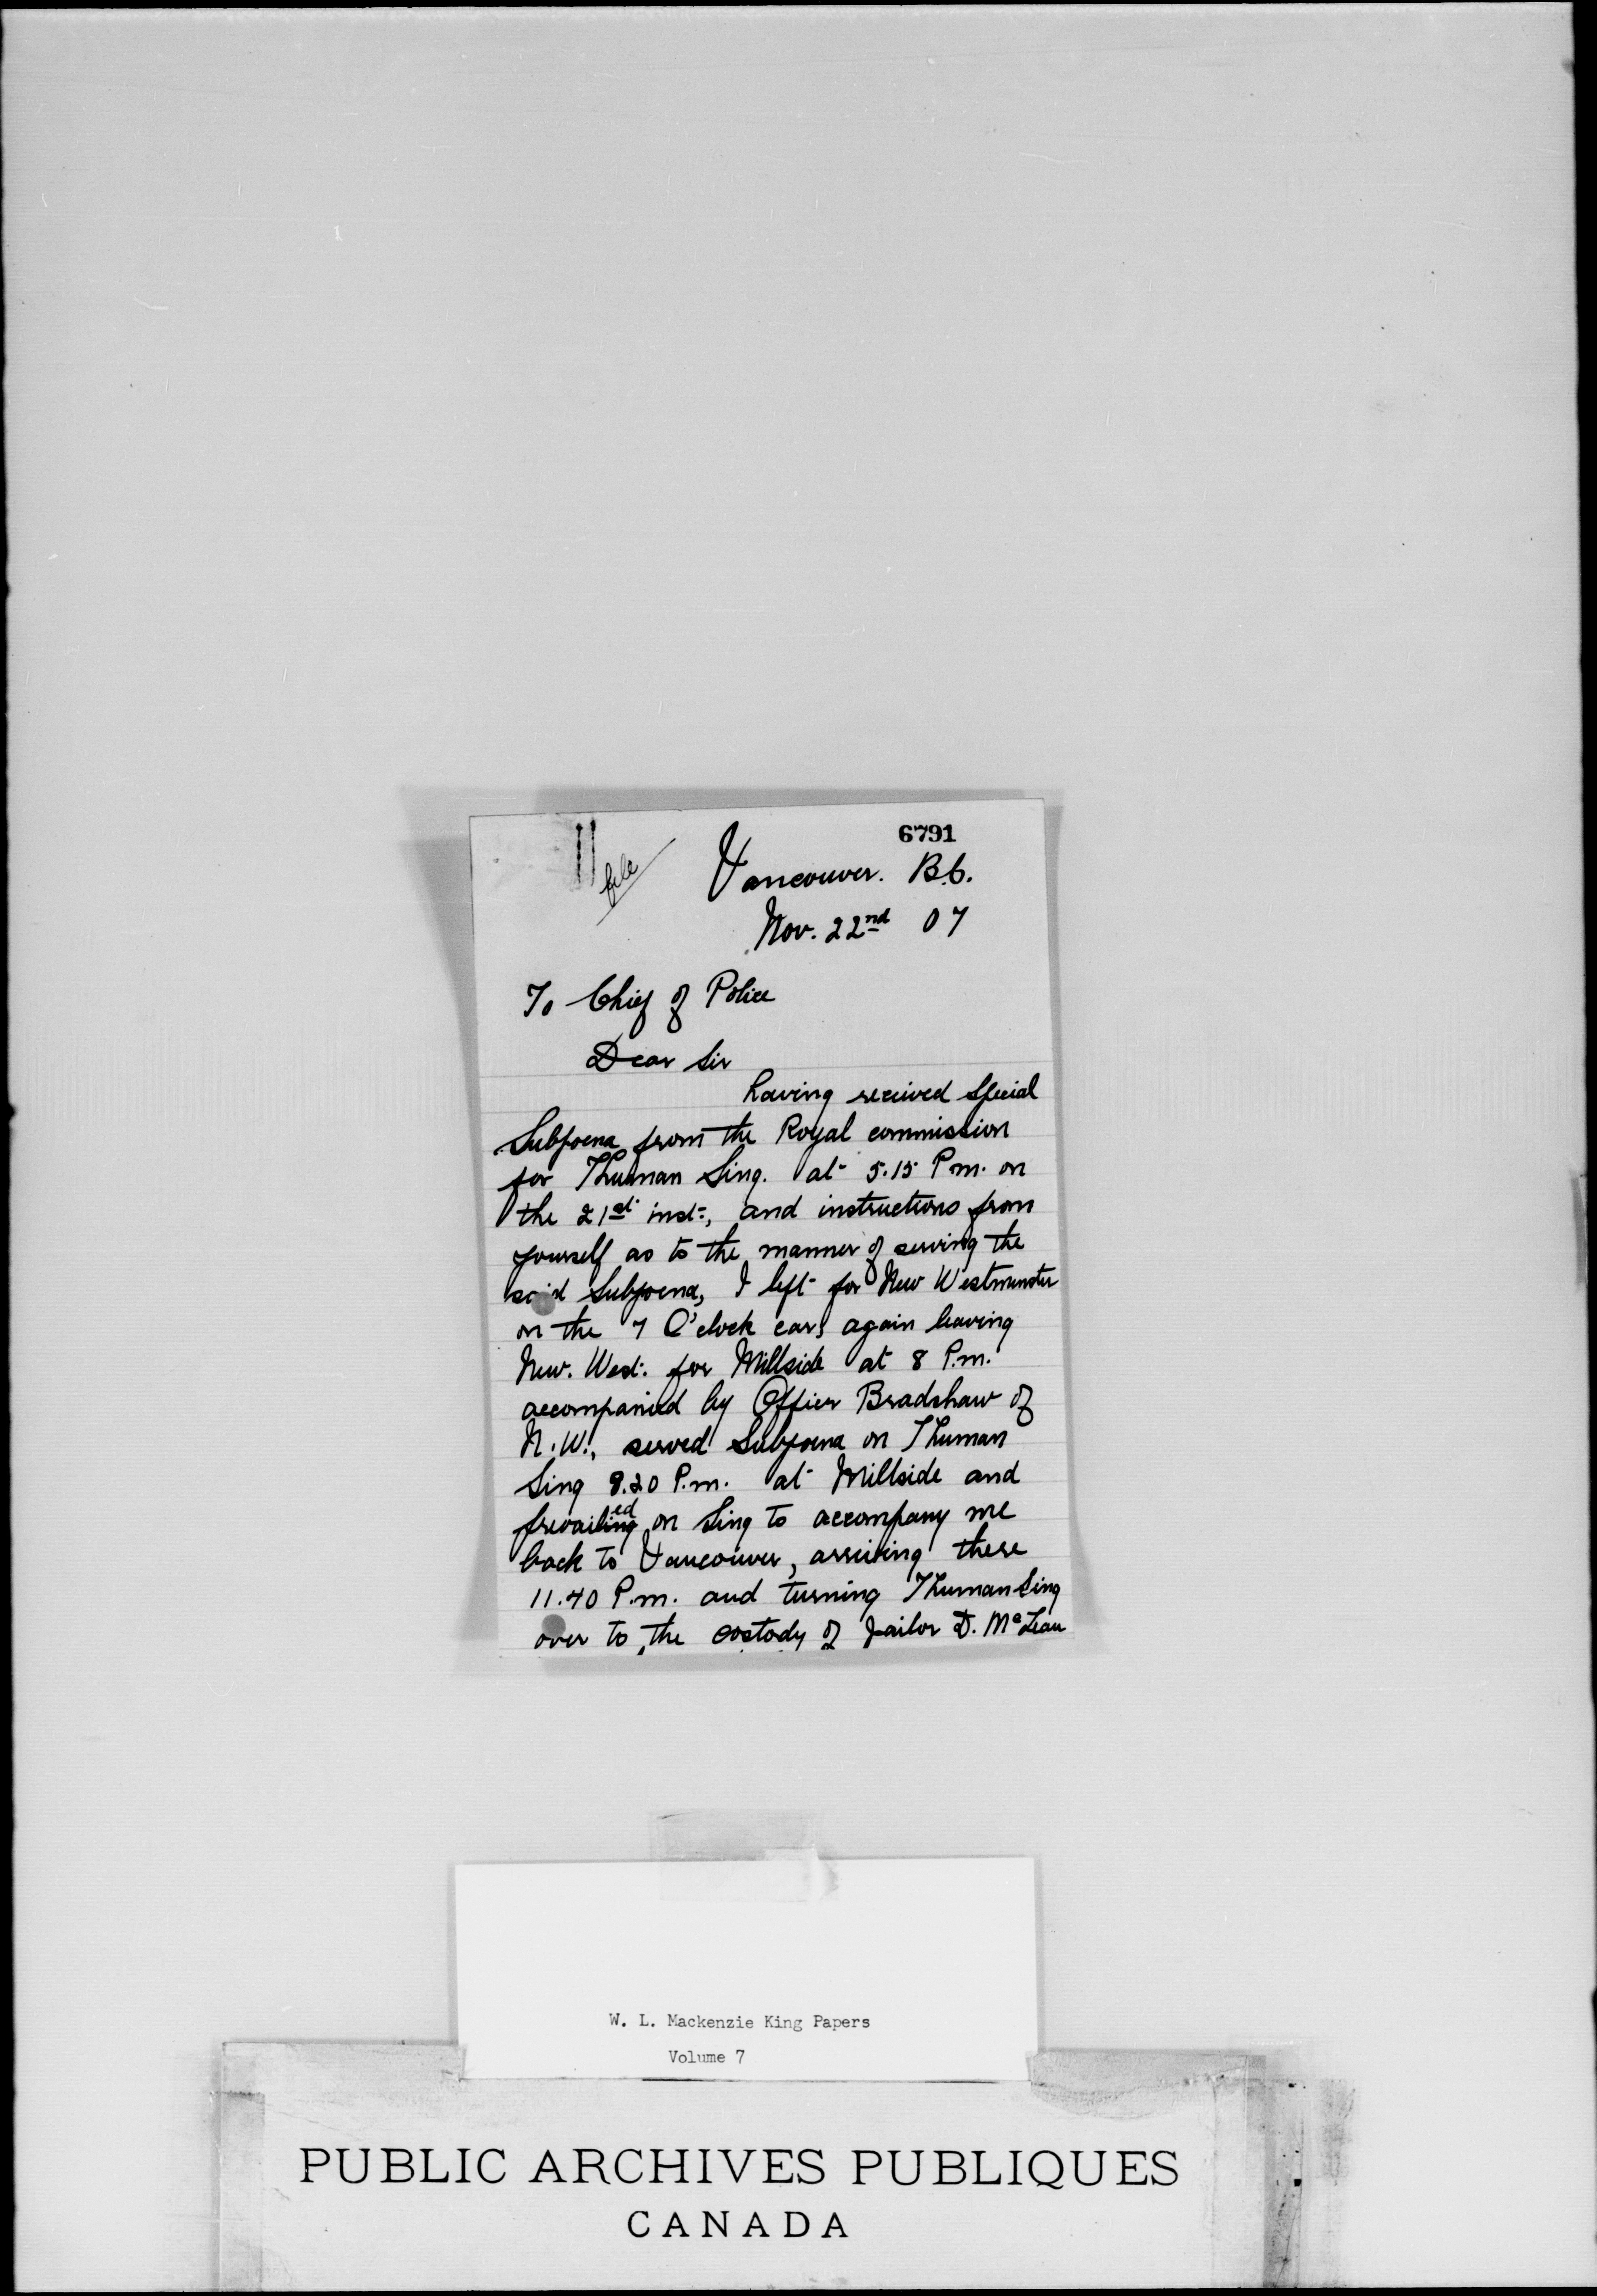 6791
file
Vancouver. B.C.
Nov. 22nd 07
To Chief of Police
Dear Sir
having received special
Subpoena from the Royal commission
for Thuman Sing. at 5.15 P.m. on
the 21st inst:, and instructions from
yourself as to the manner of serving the
said Subpoena, I left for New Westminster
on the 7 O'clock car, again leaving
New. West: for Millside at 8 P.m.
accompanied by Officer Bradshaw of
N.W., served Subpoena on Thuman
Sing 8.20 P.m. at Millside and
prevailinged on Sing to accompany me
back to Vancouver, arriving there
11.40 P.m. and turning Thuman Sing
over to the costody of Jailor D. McLean
W. L. Mackenzie King Papers
Volume 7
PUBLIC ARCHIVES PUBLIQUES
CANADA